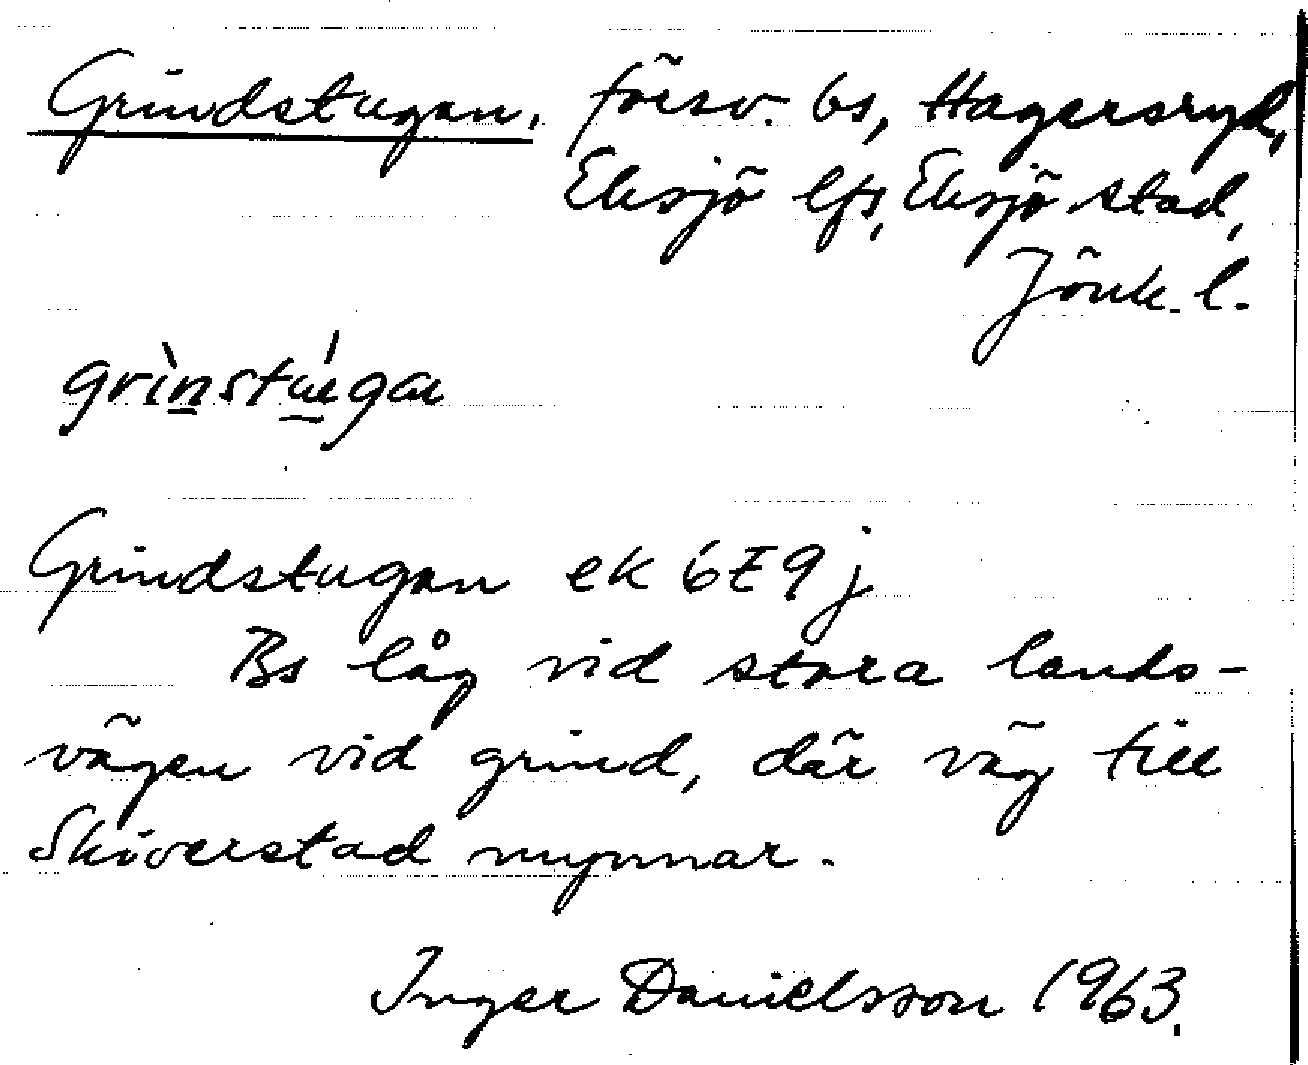 Grindstugan, försv. bs, Hagersryd,
Eksjö lfs, Eksjö stad,
Jönk. l.
Grindstugan ek 6E9j
Bs låg vid stora lands-
vägen vid grind, där väg till
Skiverstad mynnar.
Inger Danielsson 1963.